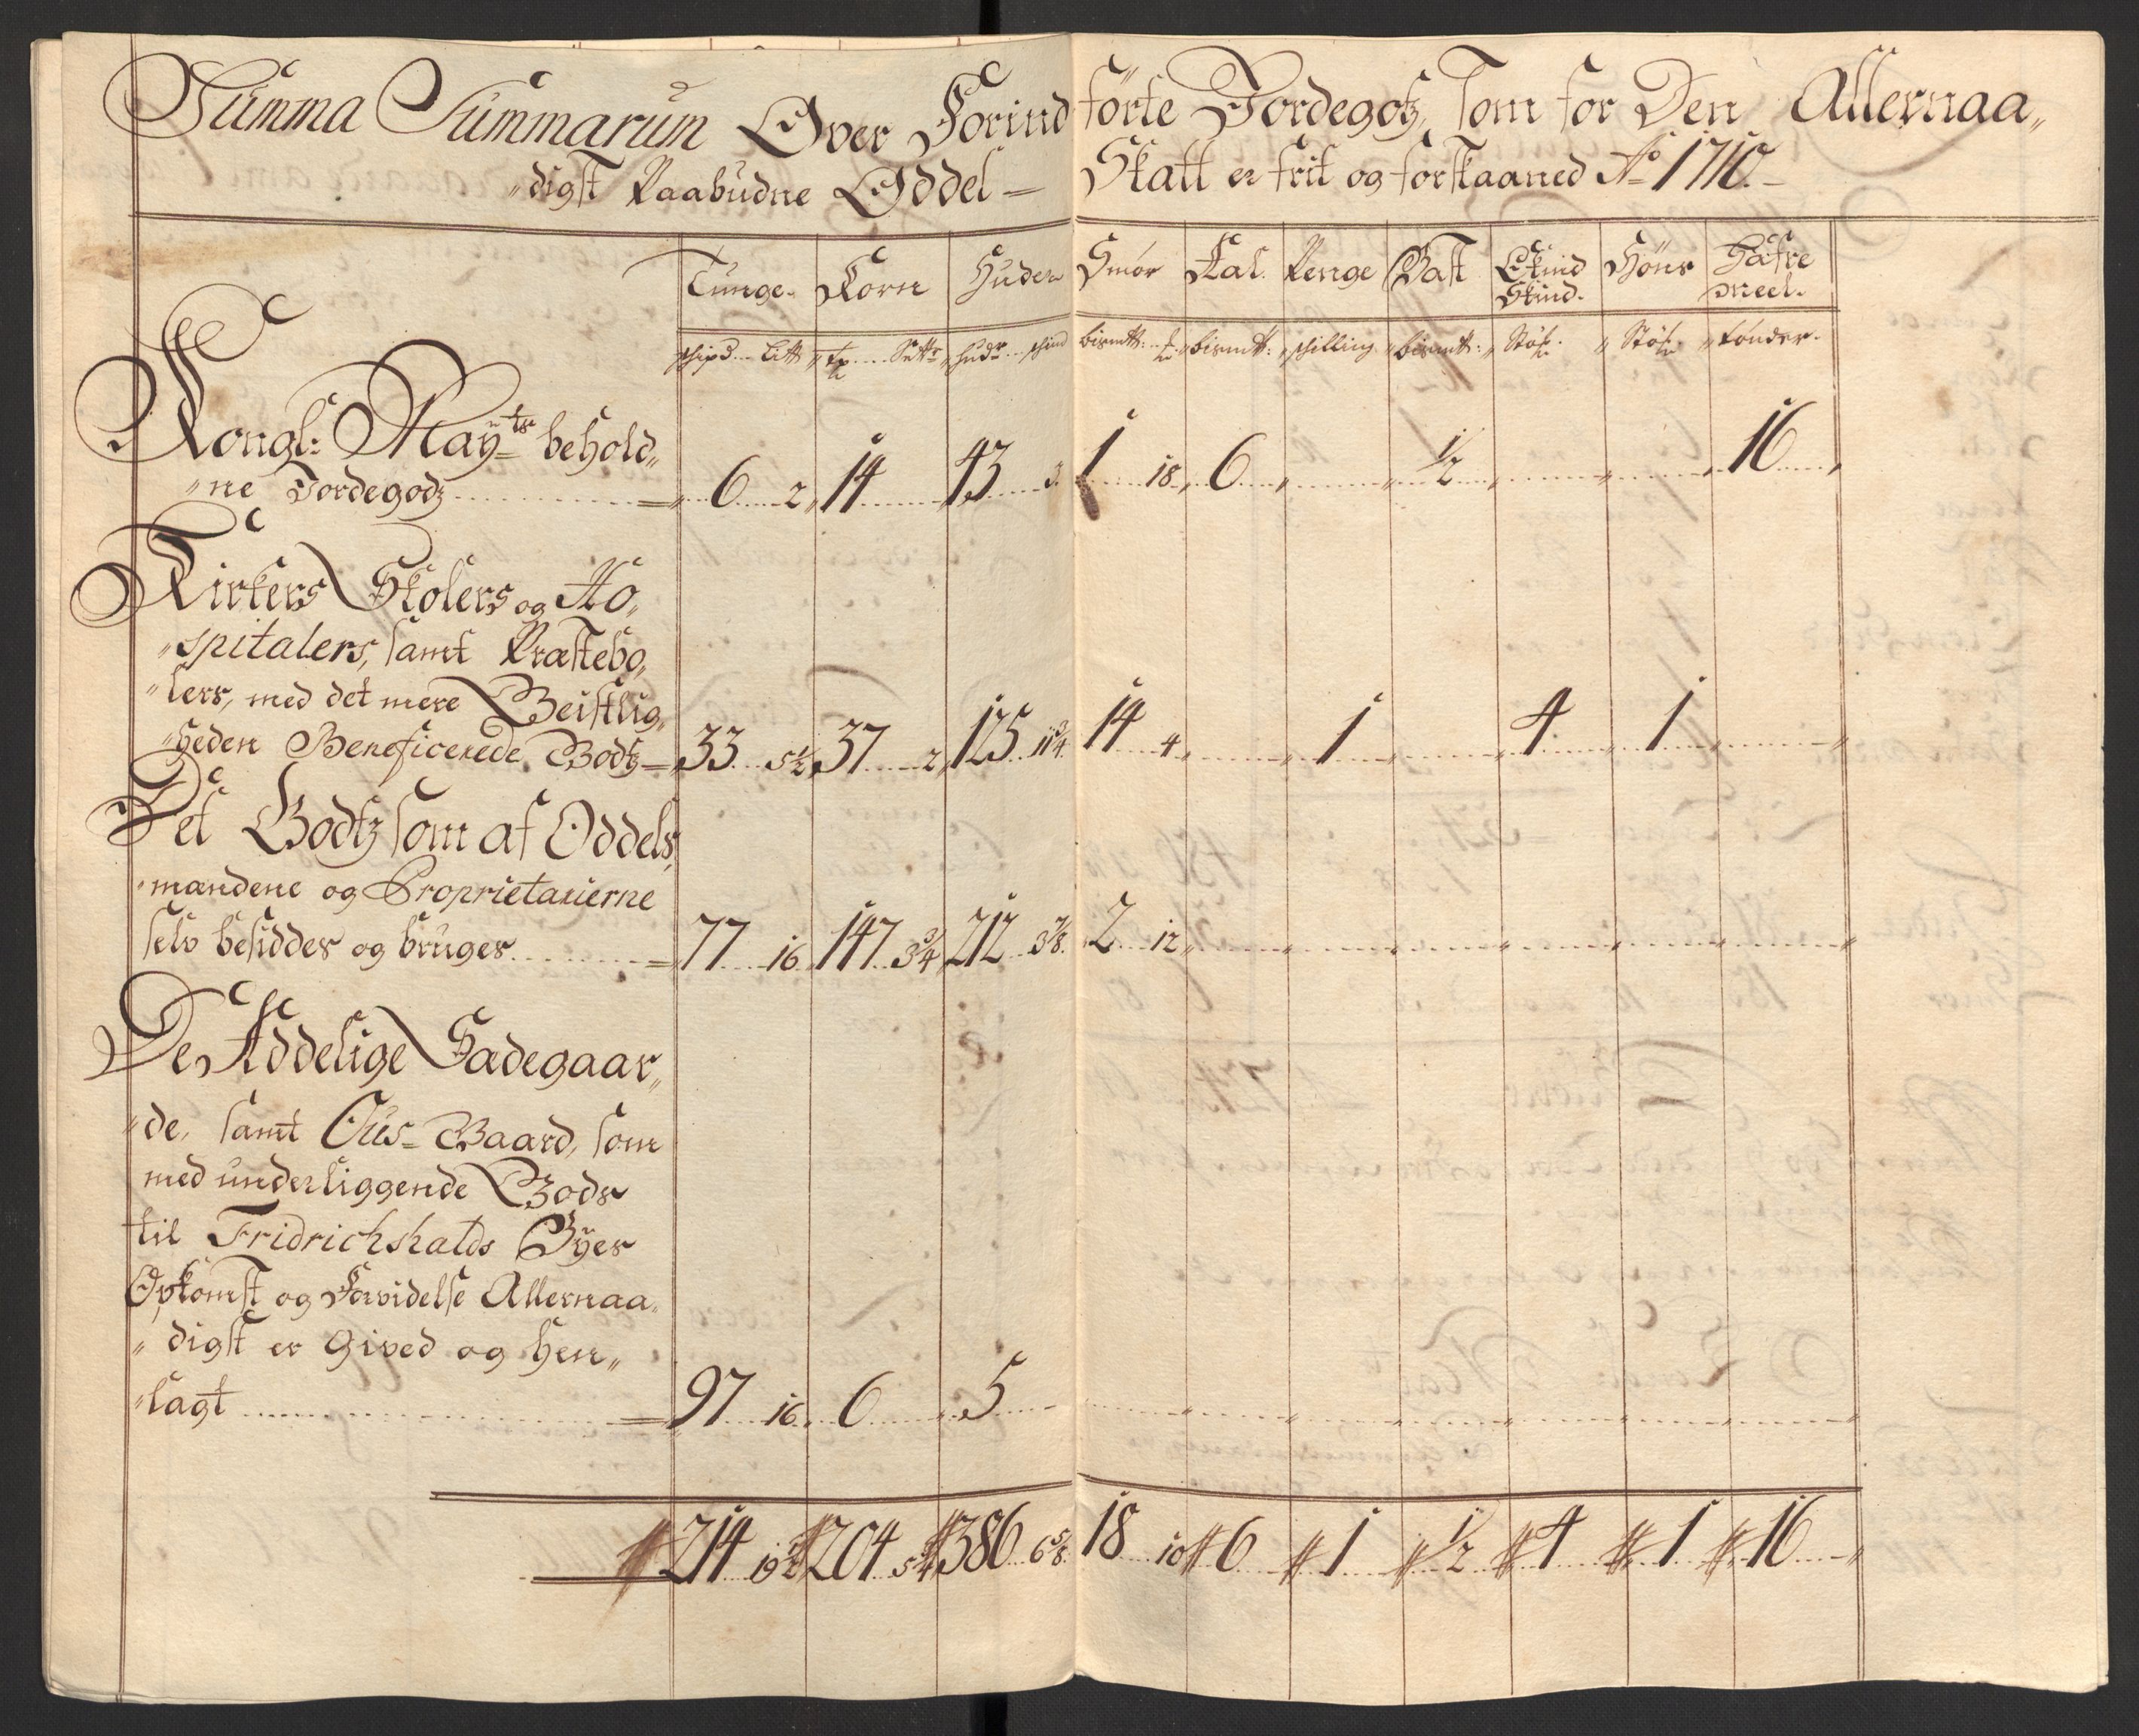 Summa Summarum Over Forind förte Jordegotz, som for Den Allernaa„
„digst Paabudne Oddel — Skatt er frit og forskaaned Ao 1710. —
Tunge. Korn Huder Smör Sal. Penge Bast Skind Höns Hafre
Skind. meel.
schipd. Litt „ tr. Sett „ hudr. schind bismtt. „ bismtt: „ schilling „ bismtt: „ Stöch. „ Stöch. „ tönder.
Kongl: Mayts behold„
„ne Jordegodz = 6 2 „ 14 43 3 1 18 „ 6 ½ 16
Kirkers Skolers og Ho„
„spitalers, samt Præstebo„
„lers, med det mere Geistlig„
„heden Beneficerede Godtz = 33 5½ 37 2 125 11¾ 14 4 1 4 1
Det Godtz som af Oddels
mændene og Proprietarierne
selv besiddes og bruges = 77 16 147 3¾ 212 3⅞ 2 12
De Addelige Sædegaar„
„de, samt Ous-Gaard, som
med underliggende Gods
til Fridrichshalds Byes
Opkomst og Forvidelse Allernaa„
„digst er gived og hen„
„lagt = 97 16 6 5
214 19½ 204 5¾ 386 6⅝ 18 10 6 1 ½ 4 1 16